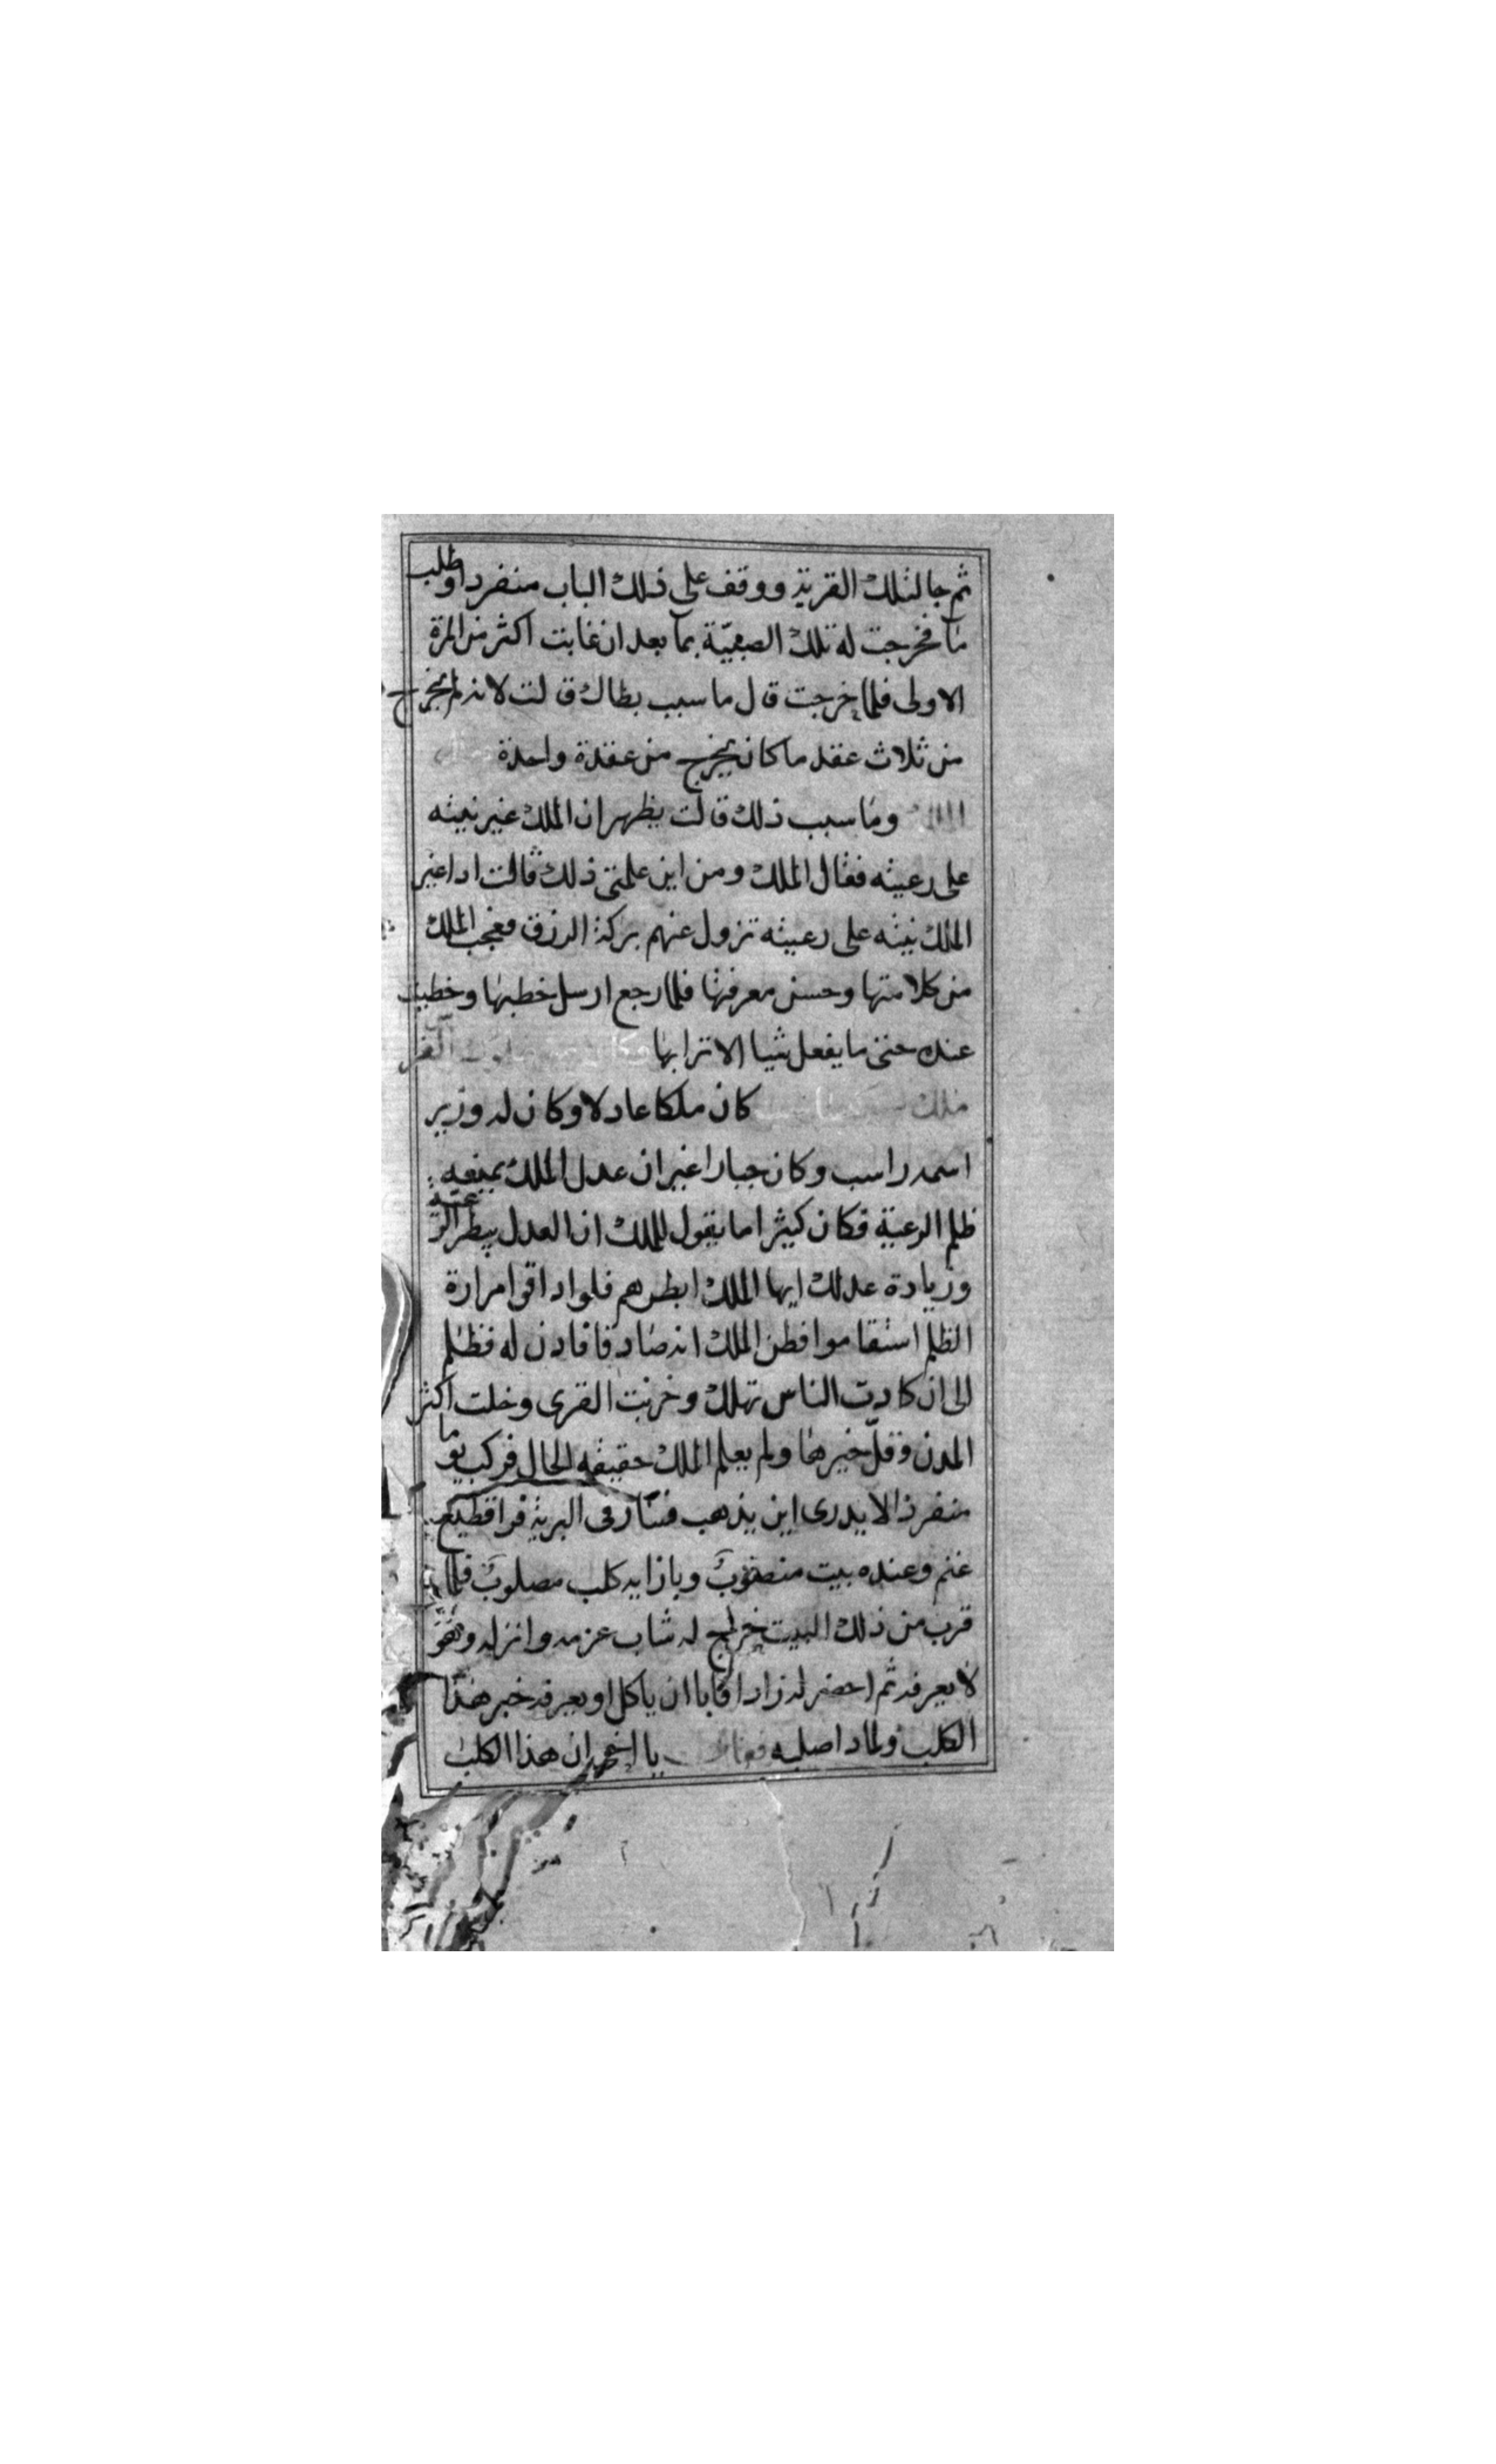 ثم جا لتلك القرية ووقف على ذلك الباب منفردا وطلب
ما فخرجت له تلك الصبية بما بعد ان غابت اكثر من المرة
الاولى فلما خرجت قال ما سبب بطاك قالت لانه لم يخرج
من ثلاث عقد ما كان يخرج من عقدة واحدة
الملك وما سبب ذلك قالت يظهر ان الملك غير نيته
على رعيته فقال الملك ومن اين علمتى ذلك قالت اذا غير
الملك نيته على رعيته تزول عنهم بركة الرزق فعجب الملك
من كلامتها وحسن معرفتها فلما رجع ارسل خطبها وخطيت
عنده حتى ما يفعل شيا الا برايها
ملك كان ملكا عادلا وكان له وزير
اسمه راسب وكان جبارا غير ان عدل الملك يمنعه
ظلم الرعية فكان كيثرا ما يقول للملك ان العدل يبطر الرعية
وزيادة عدلك ايها الملك ابطرهم فلو اداقوا مرارة
الظلم استقاموا فظن الملك انه صادقا فادن له فظلم
الى ان كادت الناس تهلك وخربت القرى وخلت اكثر
المدن وقل خيرها ولم يعلم الملك حقيقة الحال فركب يوما
منفردا لا يدرى اين يذهب فسار فى البرية فرا قطيع
غنم وعنده بيت منصوب وبازايه كلب مصلوب فلما
قرب من ذلك البيت خرج له شاب عزمه وانزله وهو
لا يعرفه ثم احضر له زادا فابا ان ياكل او يعرفه خبر هذا
الكلب ولماد اصلبه فقال يا اخى ان هذا الكلب